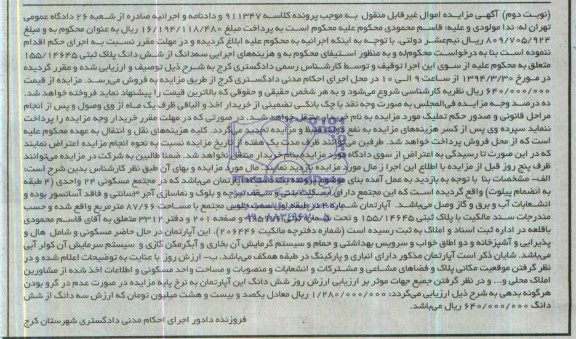 (نوبت دوم) آگهی مزایده اموال غیرقابل منقول به موجب پرونده کلاسه ۹۱۱۳۴۷ و دادنامه و اجرائیه صادره از شعبه ۲۶ دادگاه عمومی
تهران له: ندا مولودی و علیه: قاسم محمودی محکوم علیه محکوم است به پرداخت مبلغ ۱۶/۱۹۴/۱۱۸/۴۸۰ ریال به عنوان محکوم به و مبلغ
۸۰۹/۷۰۵/۹۲۴ ریال نیم‌عشر دولتی. با توجه به اینکه اجرائیه به محکوم علیه ابلاغ گردیده و در مهلت مقرر نسبت به اجرای حکم اقدام
ننموده است بنا به درخواست محکوم‌له و به منظور استیفای محکوم به و هزینه‌های اجرایی سه‌دانگ از شش دانگ پلاک ثبتی ۱۵۵/۱۴۶۴۵
متعلق به محکوم علیه از سوی این اجرا توقیف و توسط کارشناس رسمی دادگستری کرج به شرح ذیل توصیف و ارزیابی شده و مقرر گردیده
در مورخ ۱۳۹۴/۳/۳۰ از ساعت ۹ الی ۱۰ در محل اجرای احکام مدنی دادگستری کرج از طریق مزایده به فروش می‌رسد. مزایده از قیمت
۶۴۰/۰۰۰/۰۰۰ ریال نظریه کارشناسی شروع می‌شود و به هر شخص حقیقی و حقوقی که بالاترین قیمت را پیشنهاد نماید فروخته خواهد شد.
ده درصد وجه مزایده فی‌المجلس به صورت وجه نقد یا چک بانکی تضمینی از خریدار اخذ و الباقی ظرف یک ماه از وی وصول و پس از انجام
مراحل قانونی و صدور حکم تملیک مورد مزایده به نام خریدار منتقل خواهد شد. در صورتی که در مهلت مقرر خریدار وجه مزایده را پرداخت
ننماید سپرده وی پس از کسر هزینه‌های مزایده به نفع دولت ضبط و مزایده تجدید می‌گردد. کلیه هزینه‌های نقل و انتقال به عهده محکوم علیه
است که از محل فروش پرداخت خواهد شد. طرفین می‌توانند ظرف مدت یک هفته از تاریخ مزایده نسبت به نحوه انجام مزایده اعتراض نمایند
که در این صورت تا رسیدگی به اعتراض از سوی دادگاه مورد مزایده بنام خریدار منتقل نخواهد شد. ضمنا طالبین به شرکت در مزایده می‌توانند
ظرف پنج روز قبل از مزایده با اطلاع این اجرا از مال مورد مزایده بازدید نمایند. مال مورد مزایده و بهای آن طبق نظر کارشناس بدین شرح است:
الف- مشخصات با توجه به بازدید به عمل آمده بنای موضوع پرونده یک دستگاه آپارتمان می‌باشد که در مجتمع مسکونی ۲۴ واحدی (۴ طبقه
به انضمام پیلوت) واقع گردیده است که این مجتمع دارای اسکلت بتنی و سقف تیرچه و بلوک و نماسازی آجر ۳سانتی و فاقد آسانسور بوده و
انشعابات آب و برق و گاز وصل می‌باشد. آپارتمان شماره در طبقه اول سمت جنوبی مجتمع با مساحت ۸۷/۶۶ مترمربع واقع شده و حسب
مندرجات سند مالکیت با پلاک ثبتی ۱۵۵/۱۴۶۴۵ و تحت شماره و صفحه ۲۰۱ و دفتر ۳۳۱۲ متعلق به آقای قاسم محمودی
باقلعه در اداره ثبت اسناد و املاک به ثبت رسیده است (شماره دفترچه مالکیت ۲۰۶۴۴۶). این آپارتمان در حال حاضر مسکونی و شامل هال و
پذیرایی و آشپزخانه و دو اطاق خواب و سرویس بهداشتی و حمام و سیستم گرمایش آن بخاری و آبگرمکن گازی و سیستم سرمایش آن کولر آبی
می‌باشد. شایان ذکر است آپارتمان مذکور دارای انباری و پارکینگ در طبقه همکف می‌باشد. ب- ارزش روز با عنایت به توضیحات اعلام شده و در
نظر گرفتن موقعیت مکانی پلاک و فضاهای مشاعی و مشترکات و انشعابات و منصوبات و مساحت واحد مسکونی و اطلاعات اخذ شده از مشاورین
املاک محلی و... و در نظر گرفتن جمیع جهات موثر بر ارزیابی ارزش روز شش دانگ این آپارتمان به نرخ پایه مزایده در صورت عدم در گرو بودن
هرگونه بدهی به شرح ذیل ارزیابی می‌گردد: ۱/۲۸۰/۰۰۰/۰۰۰ ریال معادل یکصد و بیست و هشت میلیون تومان که ارزش سه دانگ از شش
دانگ ۶۴۰/۰۰۰/۰۰۰ ریال می‌باشد.
فروزنده دادور اجرای احکام مدنی دادگستری شهرستان کرج